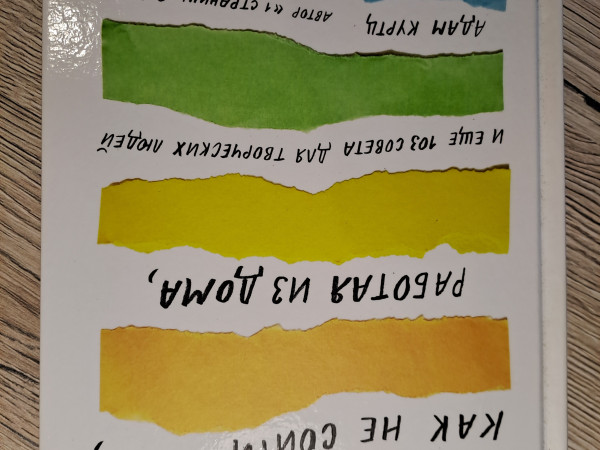 КАК НЕ СОЙТИ
РАБОТАЯ ИЗ ДОМА,
И ЕЩЕ 103 СОВЕТА ДЛЯ ТВОРЧЕСКИХ ЛЮДЕЙ
АДАМ КУРТЦ
АВТОР «1